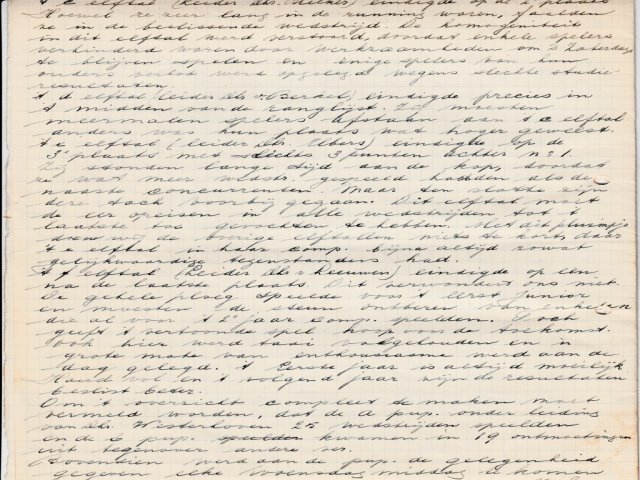 't c elftal (leider dhr. ) eindigde op de 2e plaats
Hoewel ze zeer lang in de running waren, faalden
ze in de beslissende wedstrijd. De homogeniteit
in dit elftal werd verstoord, doordat enkele spelers
verhinderd waren door werkzaamheden om 's Zaterdags
te blijven spelen en enige spelers van hun
ouders verbod werd opgelegd wegens slechte studie-
resultaten.
't d elftal (leider dhr. v. Berkel) eindigde precies in
't midden van de ranglijst. Zij moesten
meermalen spelers afstaan aan 't c elftal
anders was hun plaats wat hoger geweest.
't e elftal (leider dhr. Elbers) eindigde op de
3e plaats met slechts 3 punten achter no 1.
Zij stonden lange tijd aan de kop, doordat
ze wat meer wedstr. gespeeld hadden als de
naaste concurrenten maar ten slotte zijn
deze toch voorbij gegaan. Dit elftal moet
de eer opeisen in alle wedstrijden tot 't
laatste toe gevochten te hebben. Met dit pluimpje
doen wij de overige elftallen niets te kort, daar
't e elftal in haar comp. bijna altijd zowat
gelijkwaardige tegenstanders had.
't f elftal (Leider dhr. v Leeuwen) eindigde op een
na de laatste plaats. Dit verwondert ons niet.
De gehele ploeg speelde voor 't eerst junior
en moesten de steun ontberen van spelers
die al voor 't 2e jaar comp. speelden. Toch
geeft 't vertoonde spel hoop in de toekomst.
Ook hier werd taai volgehouden en in
grote mate van enthousiasme werd aan de
dag gelegd. 't Eerste jaar is altijd moeilijk
Houd vol en 't volgend jaar zijn de resultaten
beslist beter.
Om 't overzicht compleet te maken moet
vermeld worden, dat de a pup. onder leiding
van dhr. Westerhoven 25 wedstrijden speelden
en de c pup. speelden kwamen in 19 ontmoetingen
uit tegenover andere ver.
Bovendien werd aan de pup. de gelegenheid
gegeven elke Woensdagmiddag te komen